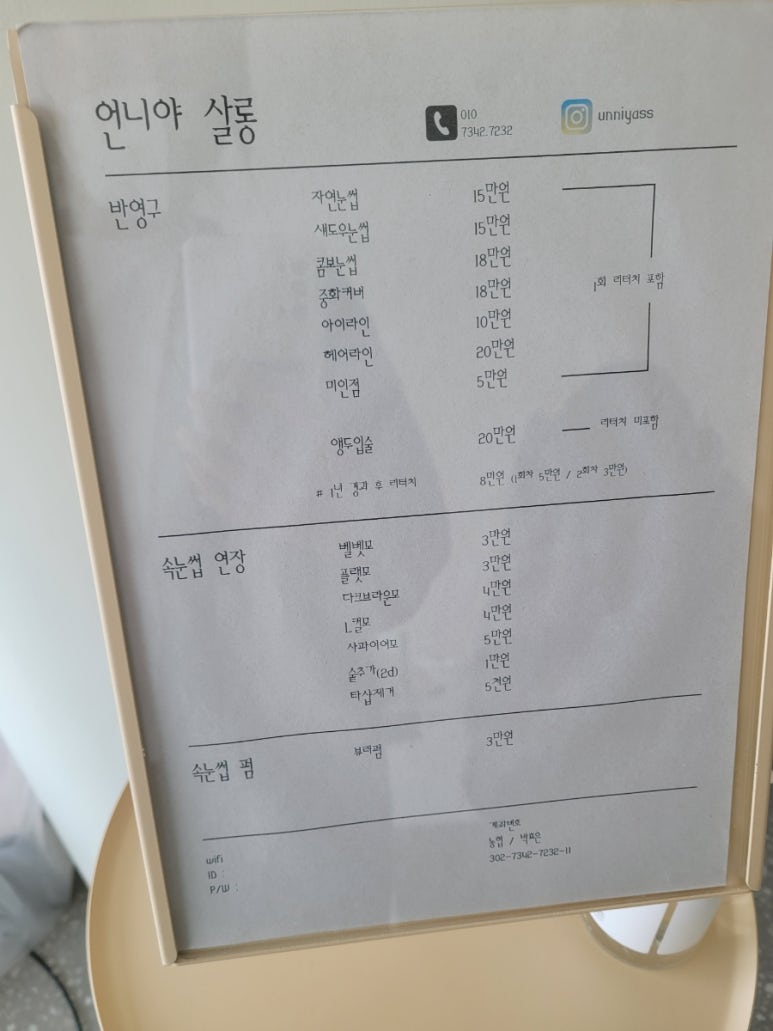 언니야 살롱
010
7342.7232
unniyass
반영구
자연눈썹 15만원
섀도우눈썹 15만원
콤보눈썹 18만원
중화커버 18만원
1회 리터치 포함
아이라인 10만원
헤어라인 20만원
미인점 5만원
앵두입술 20만원 리터치 미포함
# 1년 경과 후 리터치 8만원 (1회차 5만원 / 2회차 3만원)
속눈썹 연장
벨벳모 3만원
플랫모 3만원
다크브라운모 4만원
L컬모 4만원
사파이어모 5만원
숱추가(2d) 1만원
타샵제거 5천원
속눈썹 펌
뷰러펌 3만원
계좌번호
농협 / 박효은
302-7342-7232-11
wifi
ID :
P/W :